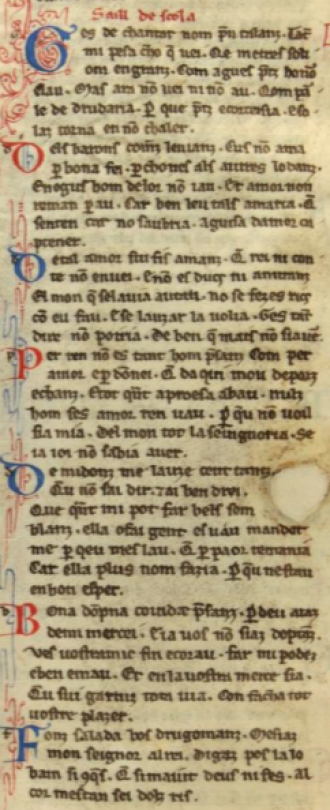 Saill de scola
Ges de chantar nom pñ talans. Tāt
mi pesa cho q̄ vei. Qe metres soli
om engranz. Com agues p̃tz honor
lau. Mas ara nō vei ni nō au. Com pas
le de drudaria. P que p̃tz ecortesia. Eso
laz torna en nō chaler.
Dels barons comēsenians. Cus nō ama
p bona fei. pchones als autres lo danz.
Enogus hom delor nō iau. Et amor non
reman p au. Car ben leu tals amaria. Q̄
senten car no saubria. aguisa damor ca
ptener.
De tal amor siu fis amanz. Q̄ rei ni con
te nō enuei. Enō es ducx ni amiranz
El mon q̄ selauia aitau. no se fezes ricx
cō eu fau. Ese lauzar la volia. Ges tāt
dire nō potria. De ben q̄ mais nō siauer.
Per ren nō es tant hom p̃sanz Com per
amor ep donei. Q̄ daqui mou deporz
echanz. Etot q̄nt aproesa abau. nulz
hom ses amor ren uau. P qu nō uoil
sia mia. del mon tot la seingnoria. Se
ia ioi nō sabia auer.
De midonz me lauze cent tanz.
Qu nō sai dir. 7ai ben drei.
Que q̄nt mi pot far bels sem
blanz. ella o fai gent esuau mandet
me p qeu mes lau. Q̄ p paor remania
Car ella plus nom fazia. P qu nestau
en bon esper.
Bona dōpna coindae p̃sanz. P deu aiaz
de mi mercei. E ia uos nō siaz doptanz.
Ves uostramic fin ecorau. far mi podez
eben emau. Et en la uostra merce sia.
Qu sui garniz tota uia. Con facha tot
uostre plazer.
Fonz salada bos drugomanz. Mesiaz
mon seignor al rei. digaz pos la lo
bam fi 9qs. Q̄ simauit deus ni fes. al
cor mestan sei dolz ris.